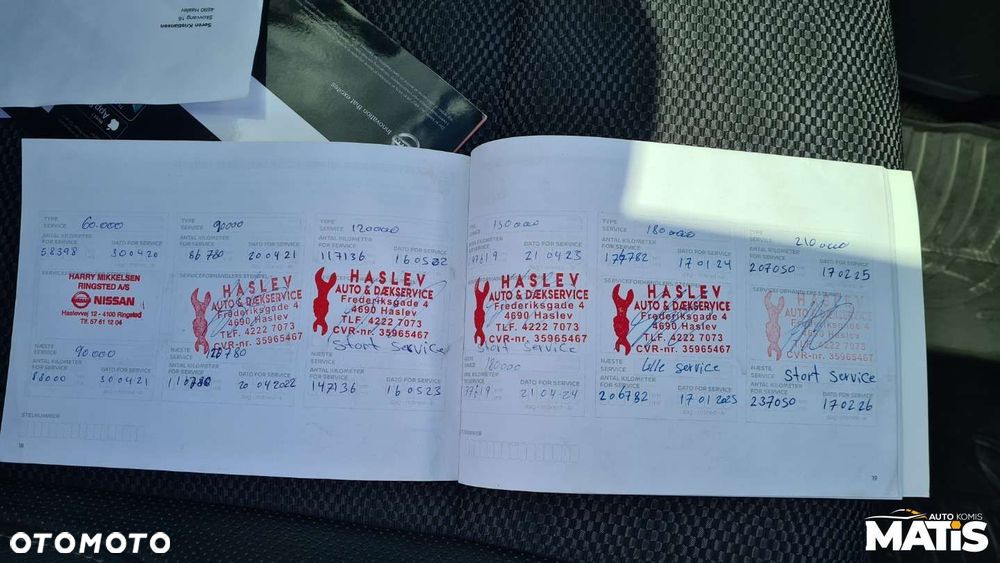 Søren Kristiansen
Skovvang 16
4690 Haslev
Innovation that excites
TYPE SERVICE 60.000
ANTAL KILOMETER FOR SERVICE
DATO FOR SERVICE
58398
30 04 20
HARRY MIKKELSEN
RINGSTED A/S
NISSAN
Haslevvej 12 - 4100 Ringsted
Tlf. 57 61 12 04
NÆSTE SERVICE 90.000
ANTAL KILOMETER FOR SERVICE
DATO FOR SERVICE
88000
30 04 21
STELNUMMER
18
TYPE SERVICE 90000
ANTAL KILOMETER FOR SERVICE
DATO FOR SERVICE
86780
20 04 21
SERVICEFORHANDLERS STEMPEL
HASLEV
AUTO & DÆKSERVICE
Frederiksgade 4
4690 Haslev
TLF. 4222 7073
CVR-nr. 35965467
NÆSTE SERVICE
ANTAL KILOMETER FOR SERVICE
DATO FOR SERVICE
20 04 2022
TYPE SERVICE 120000
ANTAL KILOMETER FOR SERVICE
DATO FOR SERVICE
117136
16 05 22
HASLEV
AUTO & DÆKSERVICE
Frederiksgade 4
4690 Haslev
TLF. 4222 7073
CVR-nr. 35965467
Stort Service
NÆSTE SERVICE
ANTAL KILOMETER FOR SERVICE
DATO FOR SERVICE
147136
16 05 23
150000
DATO FOR SERVICE
77619
21 04-23
HASLEV
AUTO & DÆKSERVICE
Frederiksgade 4
4690 Haslev
TLF. 4222 7073
CVR-nr. 35965467
Stort Service
180000
DATO FOR SERVICE
77619
21 04-24
TYPE SERVICE 180000
ANTAL KILOMETER FOR SERVICE
DATO FOR SERVICE
176782
17 01 24
HASLEV
AUTO & DÆKSERVICE
Frederiksgade 4
4690 Haslev
TLF. 4222 7073
CVR-nr. 35965467
NÆSTE SERVICE
Lille service
ANTAL KILOMETER FOR SERVICE
DATO FOR SERVICE
206782
17 01 2025
TYPE SERVICE 210000
ANTAL KILOMETER FOR SERVICE
DATO FOR SERVICE
207050
170225
HASLEV
AUTO & DÆKSERVICE
Frederiksgade 4
4690 Haslev
TLF. 4222 7073
CVR-nr. 35965467
NÆSTE SERVICE
Stort Service
ANTAL KILOMETER FOR SERVICE
DATO FOR SERVICE
237050
170226
19
OTOMOTO
AUTO KOMIS
MATIS